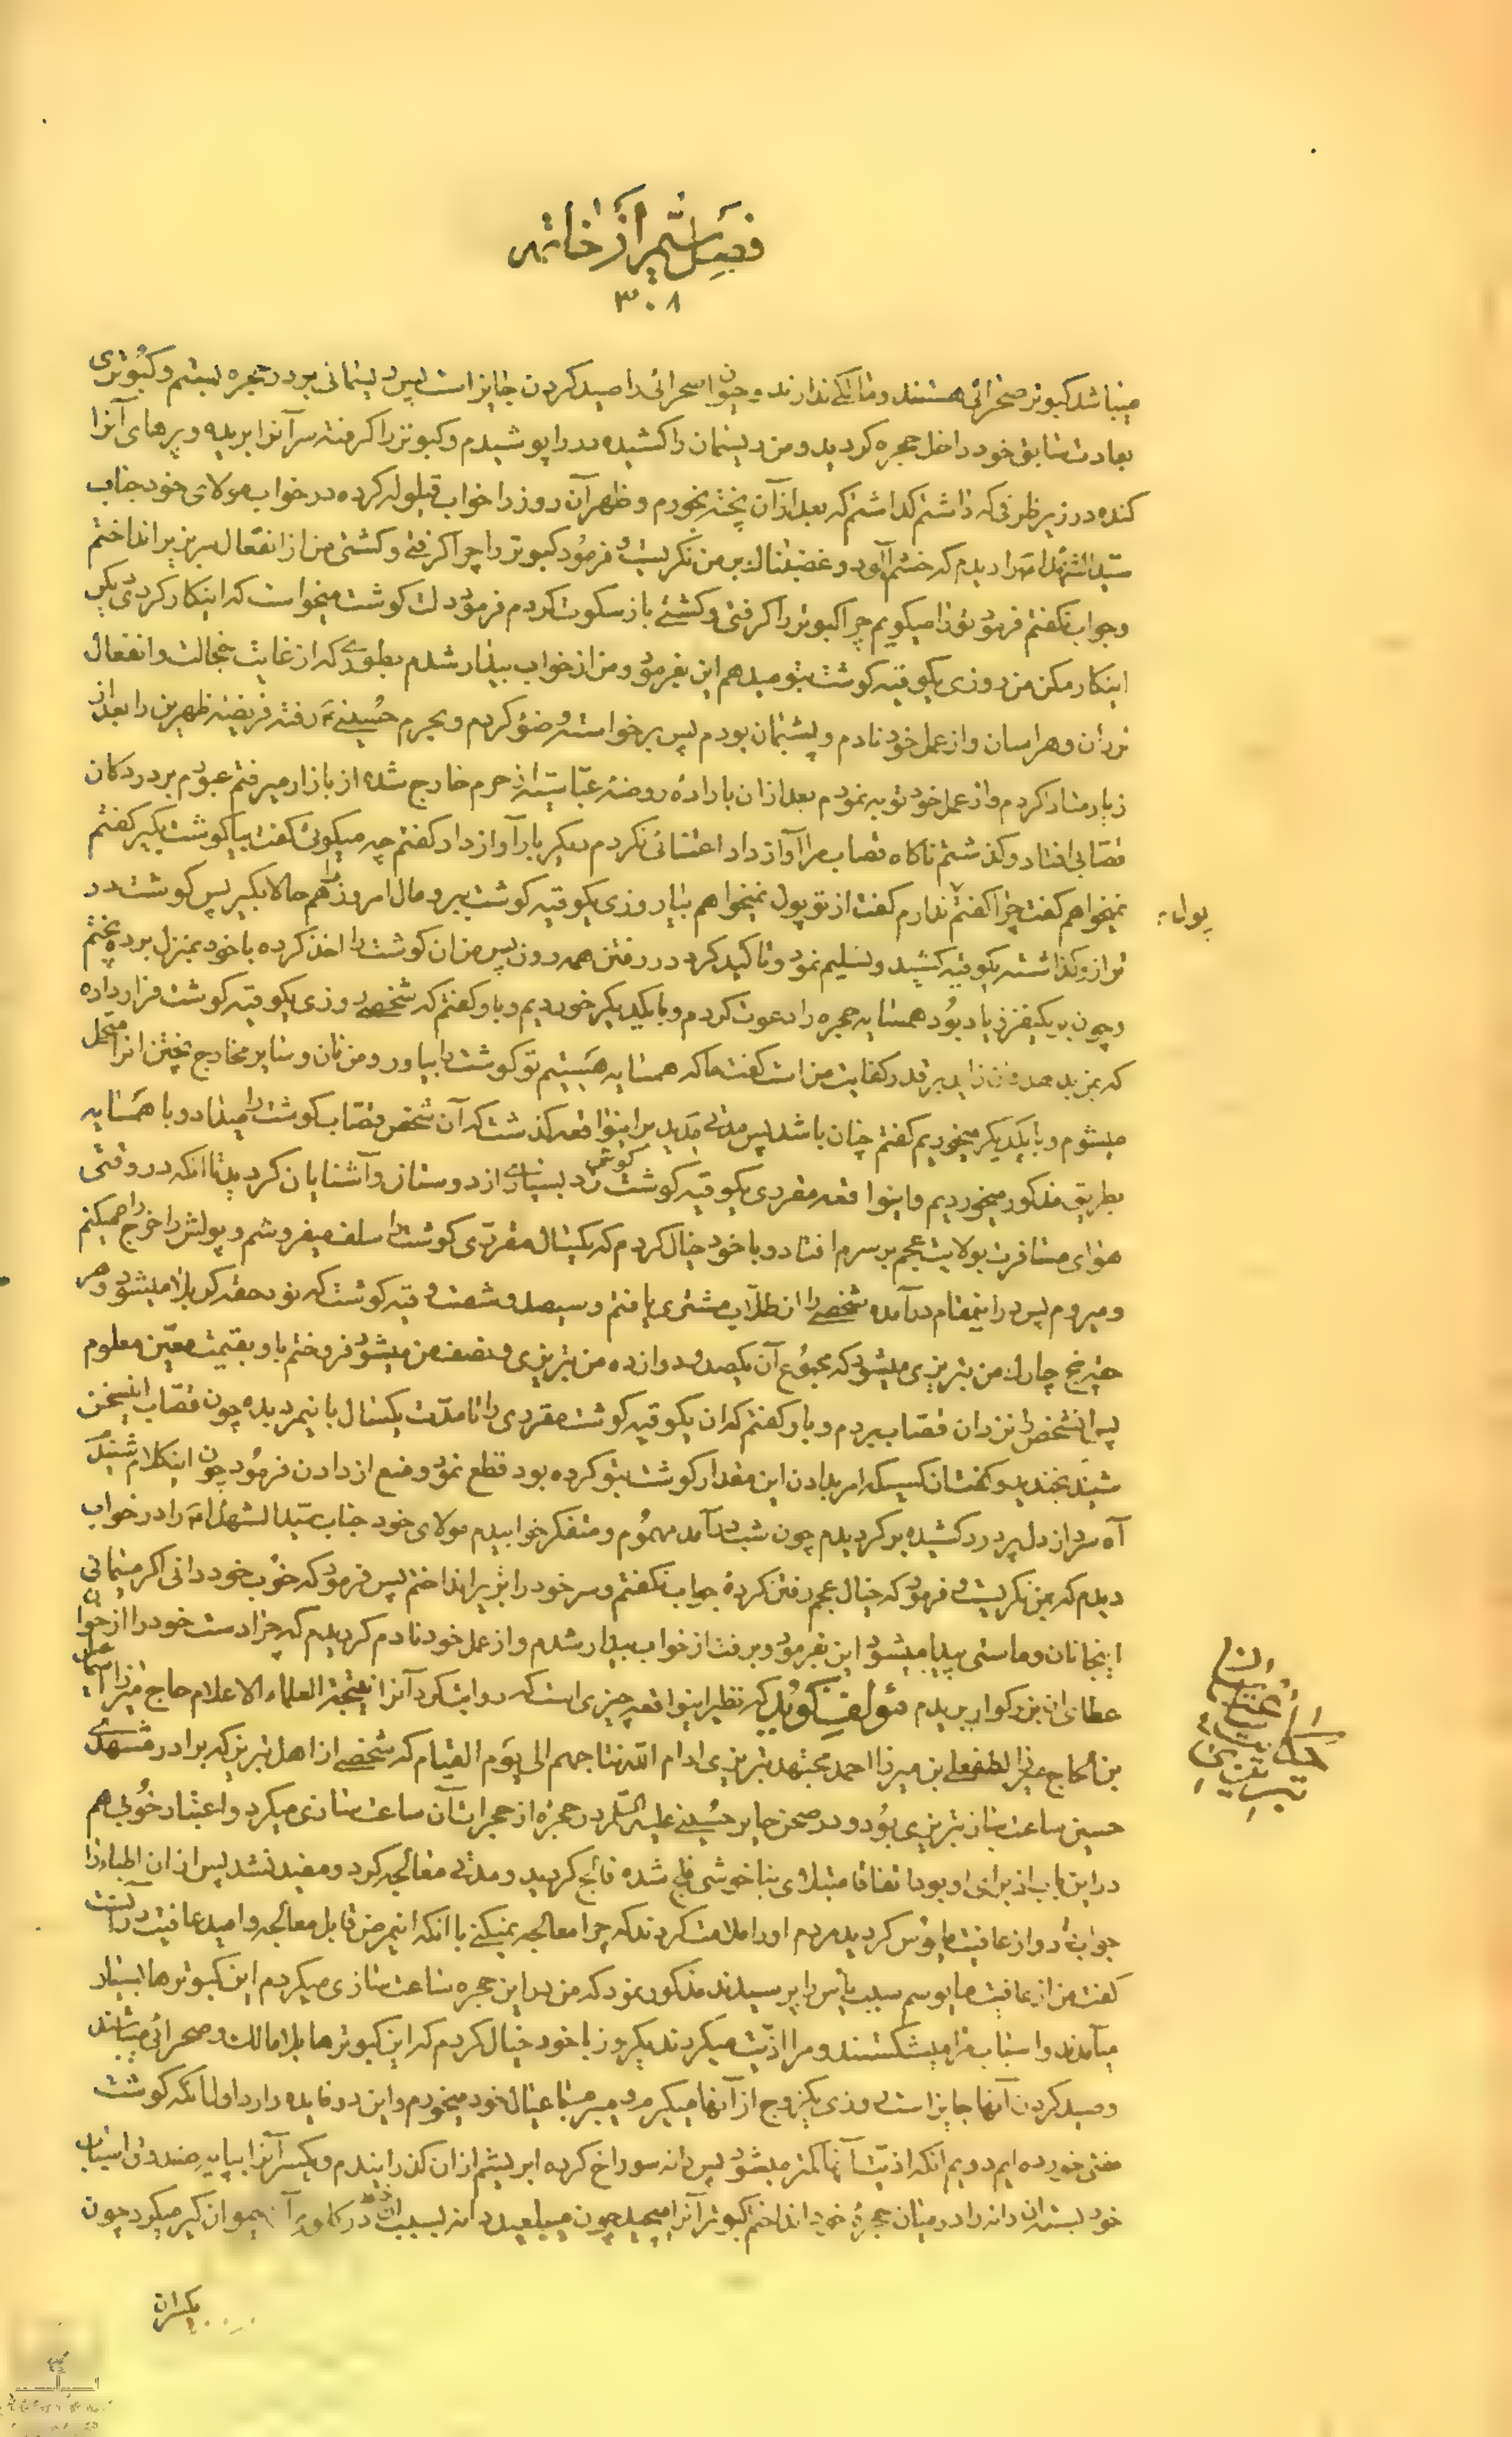 فصل ششم از خاتمه
۳۰۸
میباشد کبوتر صحرائی هستند و مالکی ندارند و چون صحرائی را صید کردن جایز است پس ریسمانی بر در حجره بستم و کبوتری
بعادت سابق خود داخل حجره گردید و من ریسمان را کشیده در را پوشیدم و کبوتر را گرفته سر آنرا بریده و پرهای آنرا
کنده در زیر ظرفی که داشتم گذاشتم که بعد از آن پخته بخورم و ظهر آن روز را خواب قیلوله کرده در خواب مولای خود جناب
سید الشهداء را دیدم که خشم آلود و غضبناک بر من نگریست و فرمود کبوتر را چرا گرفتی و کشتی من از انفعال سر بزیر انداختم
و جواب نگفتم فرمود تو را میگویم چرا کبوتر را گرفتی و کشتی باز سکوت کردم فرمود دلت گوشت میخواست که اینکار کردی دیگر
اینکار مکن من روزی یکوقیه گوشت بتو میدهم این بفرمود و من از خواب بیدار شدم بطوری که از غایت خجالت و انفعال
لرزان و هراسان و از عمل خود نادم و پشیمان بودم پس برخواسته وضو کردم و بحرم حسینیه رفته فریضه ظهرین را بعد از
زیارت ادا کردم و از عمل خود توبه نمودم بعد از آن باراده روضه عباسیه از حرم خارج شده از بازار میرفتم عبورم بر در دکان
قصابی افتاد و گذشتم ناگاه قصاب مرا آواز داد اعتنائی نکردم دیگر بار آواز داد گفتم چه میگوئی گفت بیا گوشت بگیر گفتم
نمیخواهم گفت چرا گفتم پول ندارم گفت از تو پول نمیخواهم بیا روزی یکوقیه گوشت ببر و مال امروز را هم حالا بگیر پس گوشت در
ترازو گذاشته یکوقیه کشید و تسلیم نمود و تاکید کرد در رفتن همه روز پس من آن گوشت را اخذ کرده با خود بمنزل برده پختم
و چون بر یکنفر زیاد بود همسایه حجره را دعوت کردم و با یکدیگر خوردیم و باو گفتم که شخصی روزی یکوقیه گوشت قرار داده
که بمن بدهد و آن زاید بر قدر کفایت من است گفت ما که همسایه هستیم تو گوشت را بیاور و من نان و سایر مخارج پختن آنرا متحمل
میشوم و با یکدیگر میخوریم گفتم چنان باشد پس مدتی مدید بر اینواقعه گذشت که آن شخص قصاب گوشت را میداد و با همسایه
بطریق مذکور میخوردیم و اینواقعه مقرری یکوقیه گوشت گوش زد بسیاری از دوستان و آشنایان گردید تا آنکه در وقتی
هوای مسافرت بولایت عجم بر سرم افتاد و با خود خیال کردم که یکسال مقرری گوشت را سلف میفروشم و پولش را خرج راه میکنم
و میروم پس در اینمقام درآمده شخصی را از طلاب مشتری یافتم و سیصد و شصت وقیه گوشت که نود حقه کربلا میشود و هر
حقه پنج چارک من تبریزی میشود که مجموع آن یکصد و دوازده من تبریزی و نصف من میشود فروختم باو بقیمت معین معلوم
پس آنشخص را نزد آن قصاب بردم و باو گفتم که آن یکوقیه گوشت مقرری را تا مدت یکسال باینمرد بده چون قصاب اینسخن
شنید بخندید و گفت آن کسیکه امر بدادن این مقدار گوشت بتو کرده بود قطع نمود و منع از دادن فرمود چون اینکلام شنیدم
آه سرد از دل پر درد کشیده برگردیدم چون شب درآمد مهموم و متفکر خوابیدم مولای خود جناب سید الشهداء را در خواب
دیدم که بمن نگریست و فرمود که خیال عجم رفتن کردۀ جواب نگفتم و سر خود را بزیر انداختم پس فرمود که خوب خود دانی اگر میمانی
اینجا نان و ماستی پیدا میشود این بفرمود و برفت از خواب بیدار شدم و از عمل خود نادم گردیدم که چرا دست خود را از خوان
عطای آن بزرگوار بریدم مؤلف گوید که نظیر اینواقعه چیزی است که روایت کرد آنرا نتیجة العلماء الاعلام حاج میرزا اسماعیل
بن الحاج میرزا لطفعلی بن میرزا احمد مجتهد تبریزی ادام الله تاجهم الی یوم القیام که شخصی از اهل تبریز که برادر مشهدی
حسین ساعت ساز تبریزی بود و در صحن حایر حسینی علیه السلام در حجره از حجرات آن ساعت سازی میکرد و اعتبار خوبی هم
در این باب از برای او بود اتفاقا مبتلای بناخوشی فلج شده فالج گردید و مدتی معالجه کرد و مفید نشد پس از آن اطباء را
جواب داد و از عافیت مایوس گردید مردم او را ملامت کردند که چرا معالجه نمیکنی با آنکه اینمرض قابل معالجه و امید عافیت در آنست
گفت من از عافیت مایوسم سبب یأس را پرسیدند مذکور نمود که من در این حجره ساعت سازی میکردم این کبوترها بسیار
میآمدند و اسباب مرا میشکستند و مرا اذیت میکردند یکروز با خود خیال کردم که این کبوترها بلا مالک و صحرائی میباشند
و صید کردن آنها جایز است روزی یکزوج از آنها میگیرم و میبرم با عیال خود میخورم و این دو فایده دارد اول آنکه گوشت
مفتی خورده ایم دویم آنکه اذیت آنها کمتر میشود پس دانه سوراخ کرده ابریشم از آن گذرانیدم و یکسر آنرا بپایه صندوق اسباب
خود بسته آن دانه را در میان حجرۀ خود انداختم کبوتر آنرا میچید چون میبلعید دانه بسبب آن در گلویش گیر میکرد چون
پول؛
یکسر آن